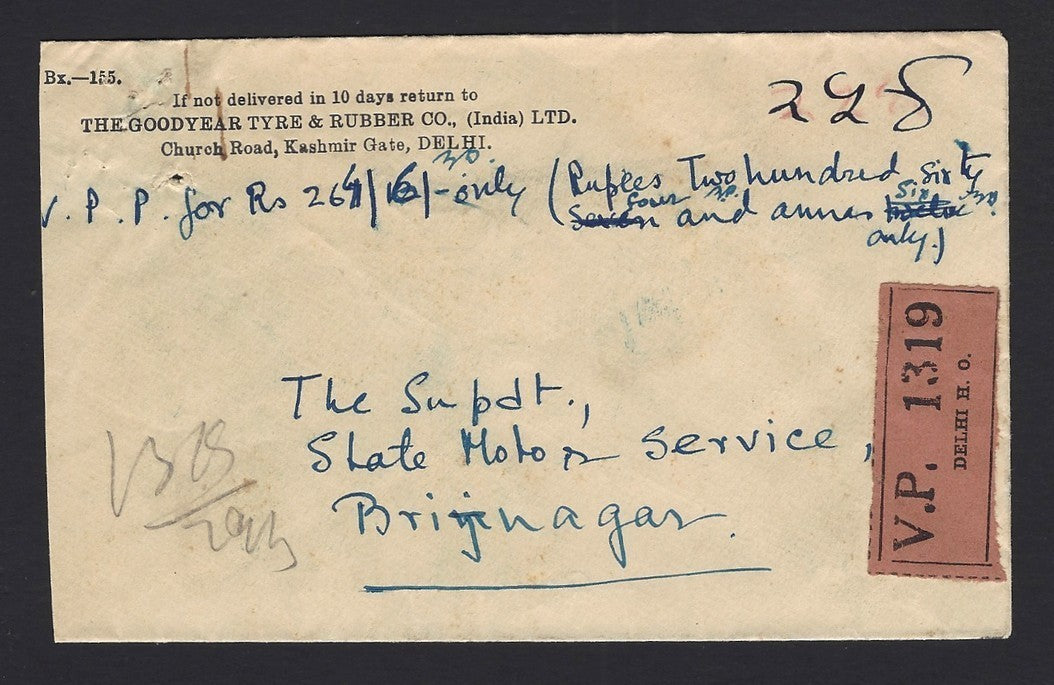 Bx.—155.
If not delivered in 10 days return to
THE GOODYEAR TYRE & RUBBER CO., (India) LTD.
Church Road, Kashmir Gate, DELHI.
V. P. P. for Rs 264/6/- only (Rupees Two hundred Sixty
four and annas Six
only.)
The Supdt.,
State Motor Service,
Brijnagar.
V.P. 1319
DELHI H. O.